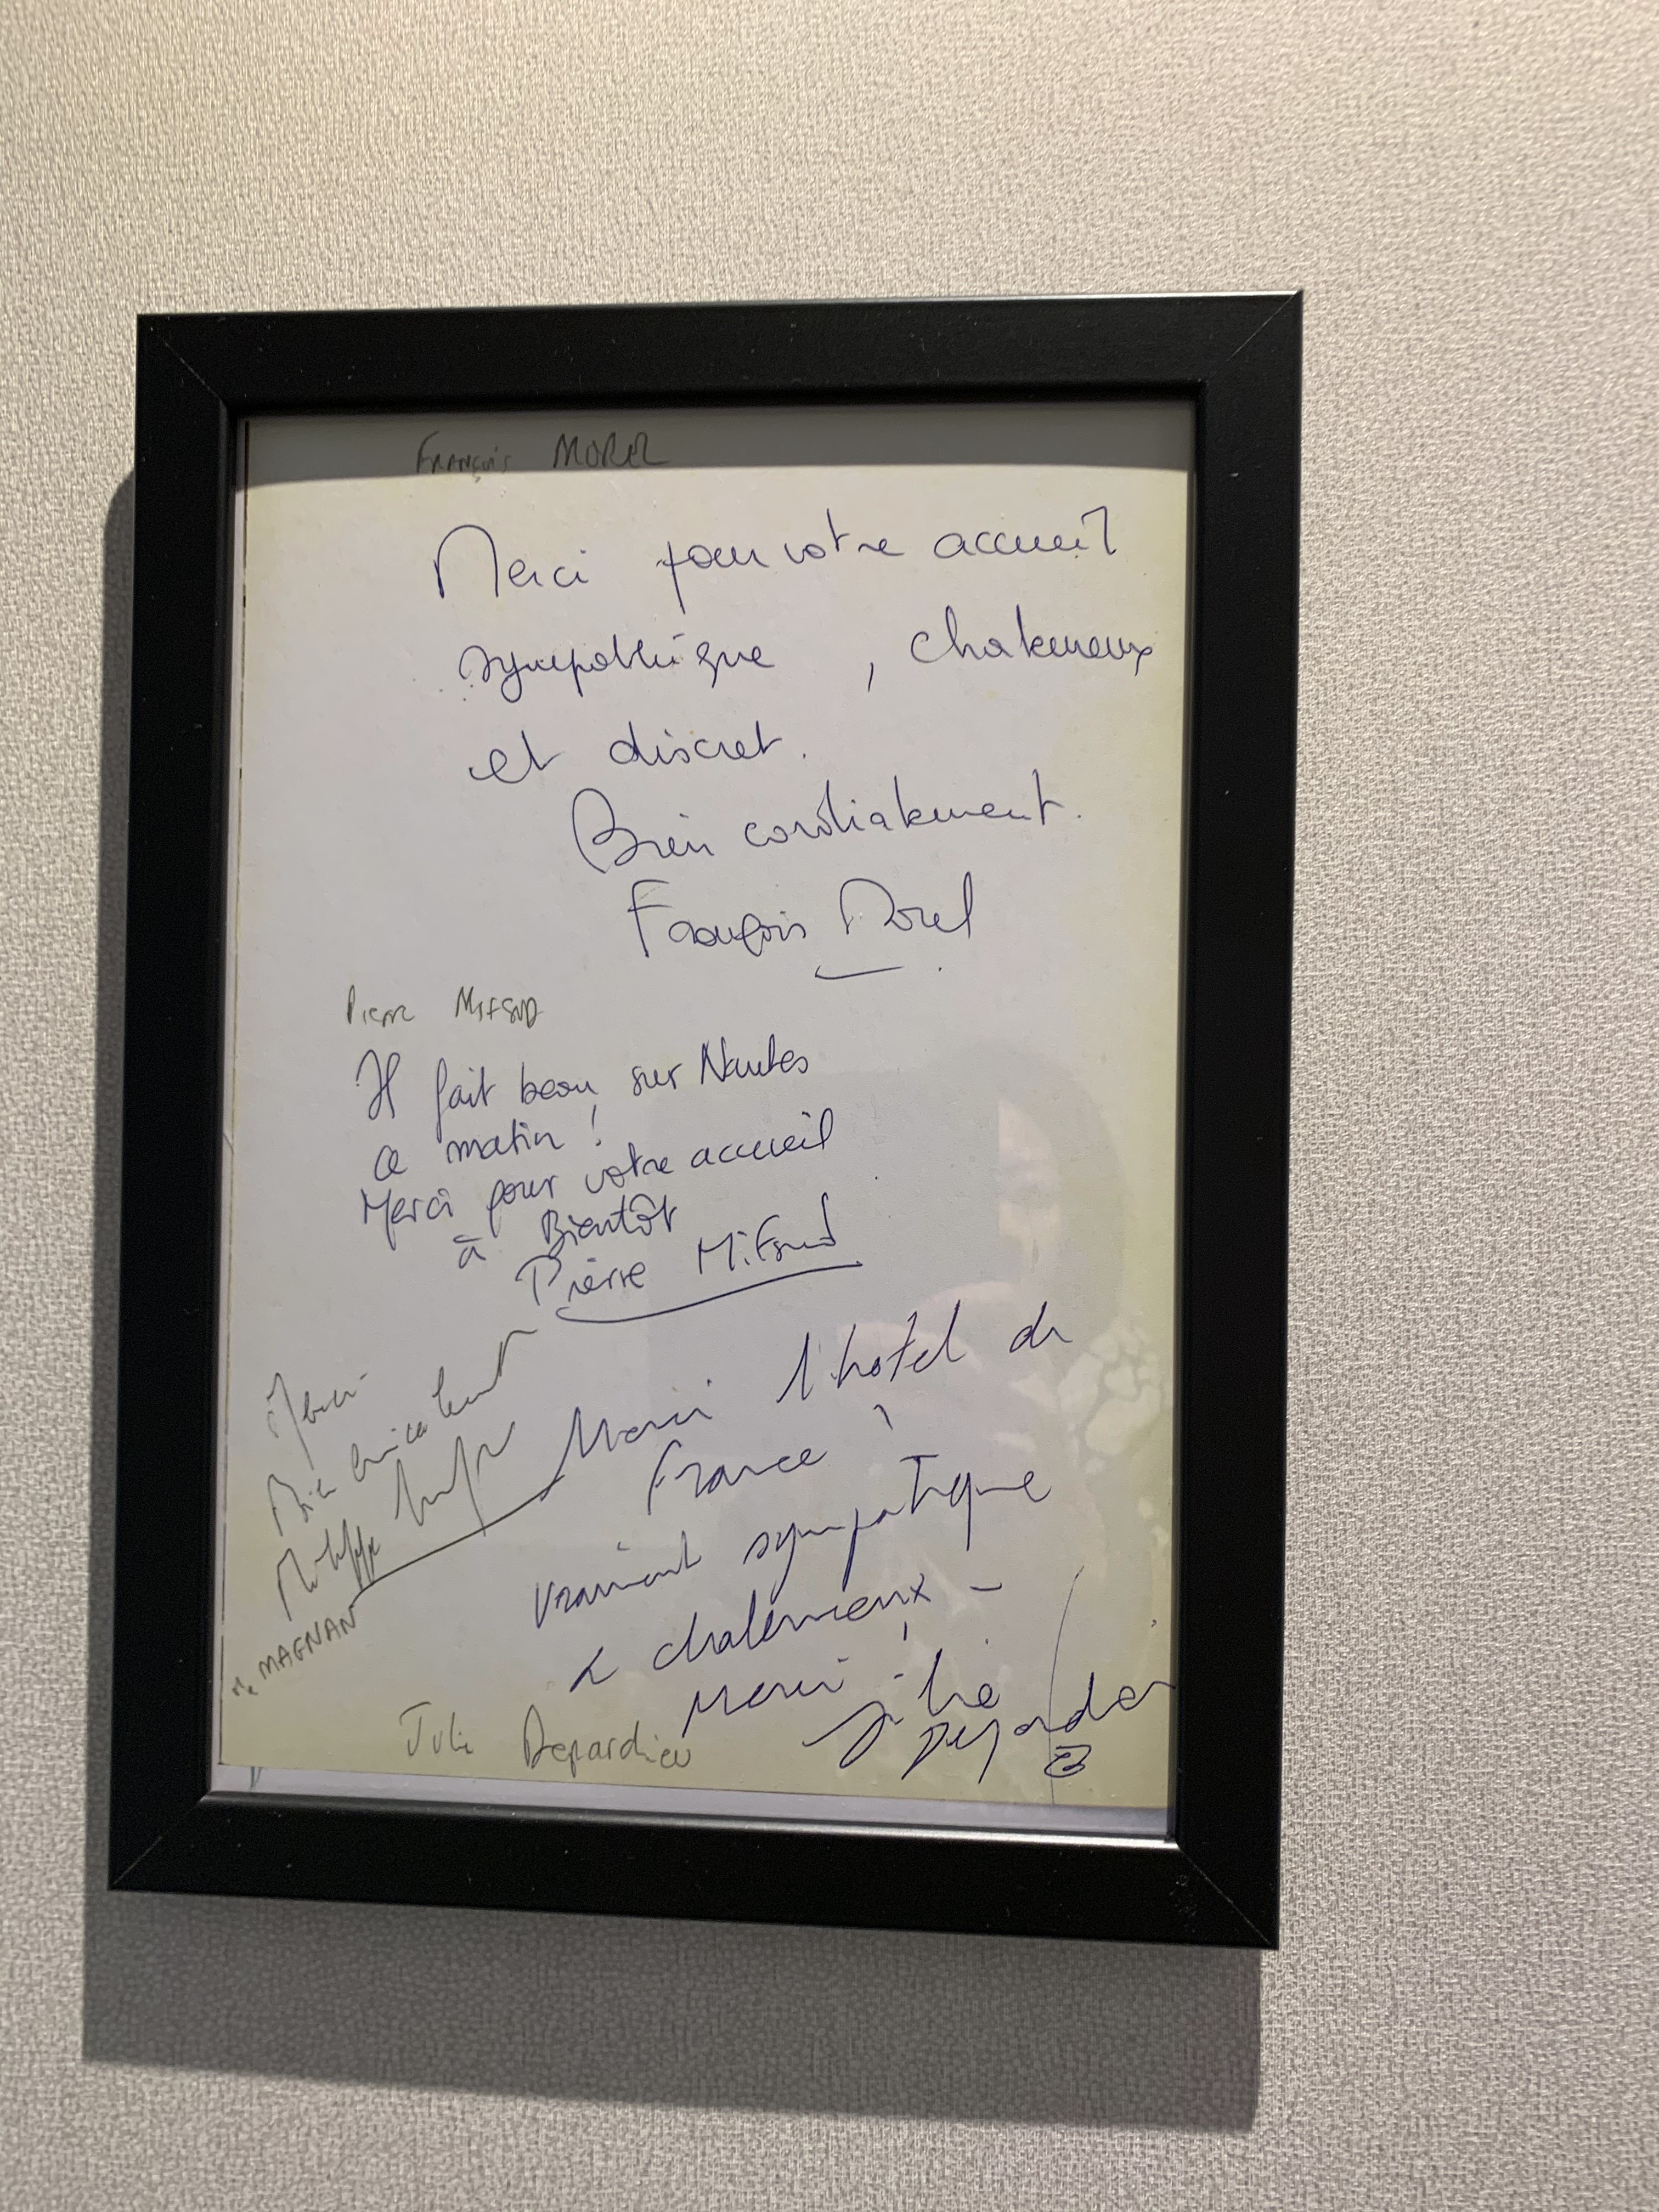 François MOREL
Merci pour votre accueil
sympathique , chaleureux
et discret.
Bien cordialement.
François Morel
Pierre MIFSUD
Il fait beau sur Nantes
ce matin !
Merci pour votre accueil
à Bientôt
Pierre Mifsud
Merci
Bien amicalement
Philippe
MAGNAN
Merci l'hotel de
France
vraiment sympatique
& chaleureux -
Merci ! Julie
Depardieu
Julie Depardieu